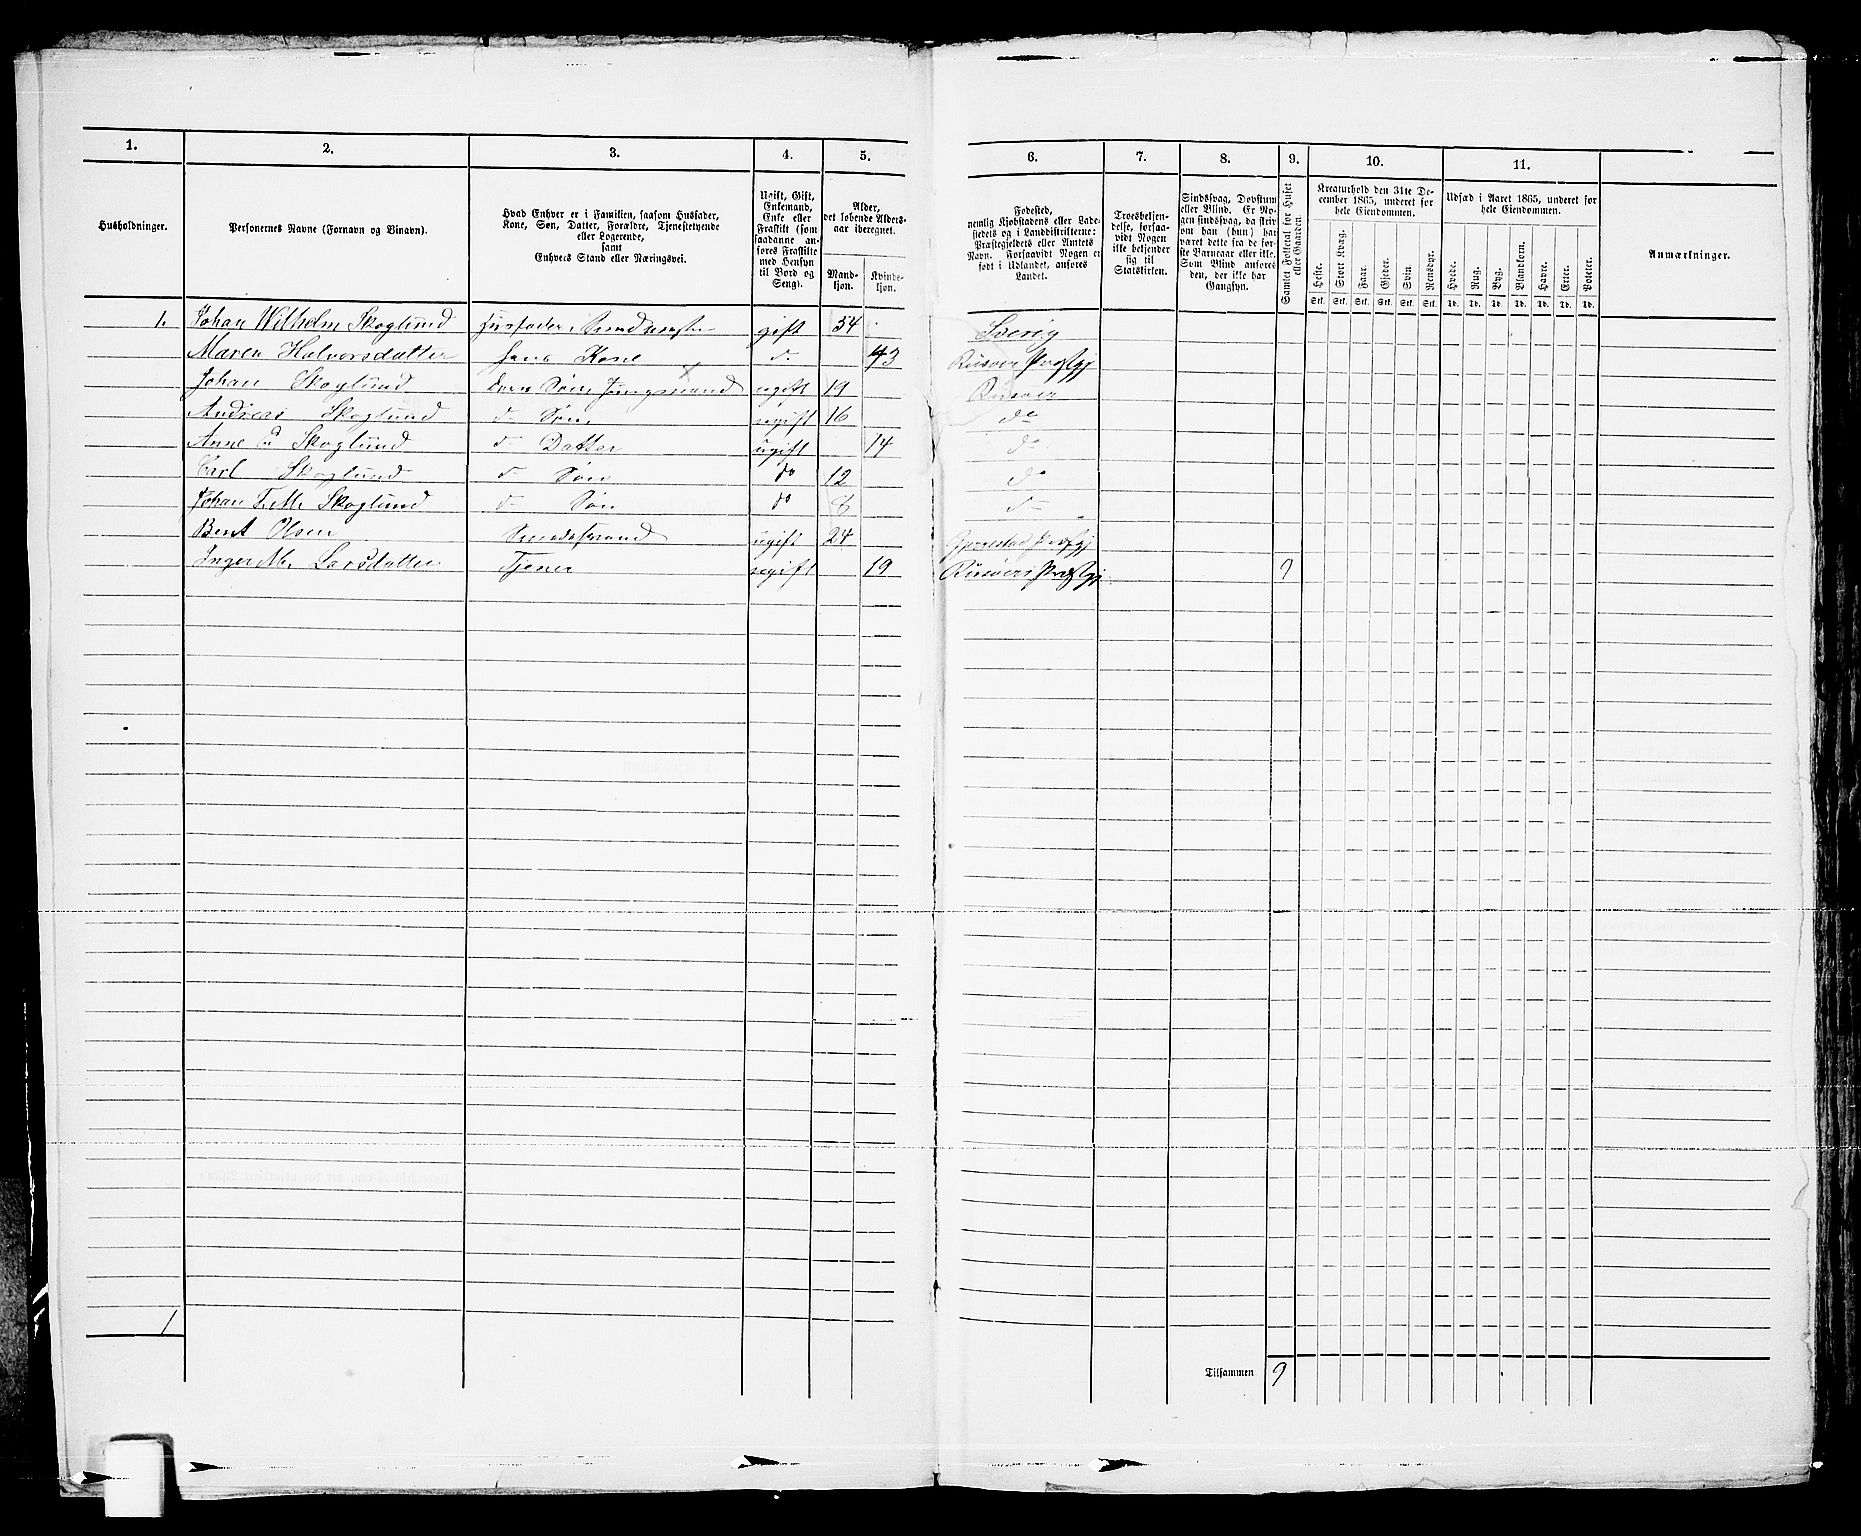 1.
2.
3.
4.
5.
6.
7.
8.
9.
10.
11.
Husholdninger.
Personernes Navne (Fornavn og Binavn).
Hvad Enhver er i Familien, saasom Husfader,
Kone, Søn, Datter, Forældre, Tjenestetyende
eller Logerende,
samt
Enhvers Stand eller Næringsvei.
Ugift, Gift,
Enkemand,
Enke eller
Fraskilt (som
saadanne an-
føres Fraskilte
med Hensyn
til Bord og
Seng).
Alder,
det løbende Alders-
aar iberegnet.
Mand-
kjøn.
Kvinde-
kjøn.
Fødested,
nemlig Kjøbstadens eller Lade-
stedets og i Landdistrikterne:
Præstegjeldets eller Amtets
Navn. Forsaavidt Nogen er
født i Udlandet, anføres
Landet.
Troesbekjen-
delse, forsaa-
vidt Nogen
ikke bekjender
sig til
Statskirken.
Sindssvag, Døvstum
eller Blind. Er No-
gen sindssvag, da skriv
om han (hun) har
været dette fra de før-
ste Barneaar eller ikke.
Som Blind anføres
den, der ikke har
Gangsyn.
Samlet Folketal for Huset
eller Gaarden.
Kreaturhold den 31te De-
cember 1865, underet for
hele Eiendommen.
Heste.
Stort Kvæg.
Faar.
Gjeder.
Svin.
Rensdyr.
Stk. Stk. Stk. Stk. Stk. Stk.
Udsæd i Aaret 1865, underet for
hele Eiendommen.
Hvede.
Rug.
Byg.
Blandkorn.
Havre.
Erter.
Poteter.
Td. Td. Td. Td. Td. Td. Td.
Anmærkninger.
1. Johan Wilhelm Skoglund Husfader gift 54 Sverig
Maren Halvorsdatter hans Kone do 43 Risøer Præstgj
Johan Skoglund deres Søn, Jungmand ugift 19 Risøer
Andreas Skoglund do Søn ugift 16 do
Anne Skoglund do Datter ugift 14 do
Carl Skoglund do Søn do 12 do
Johan Skoglund do Søn do 8 do
Bent Olsen ugift 24 Gjerrestad Præstgj
Inger M. Larsdatter Tjener ugift 19 Risøers Præstgj 9
1
Tilsammen 9